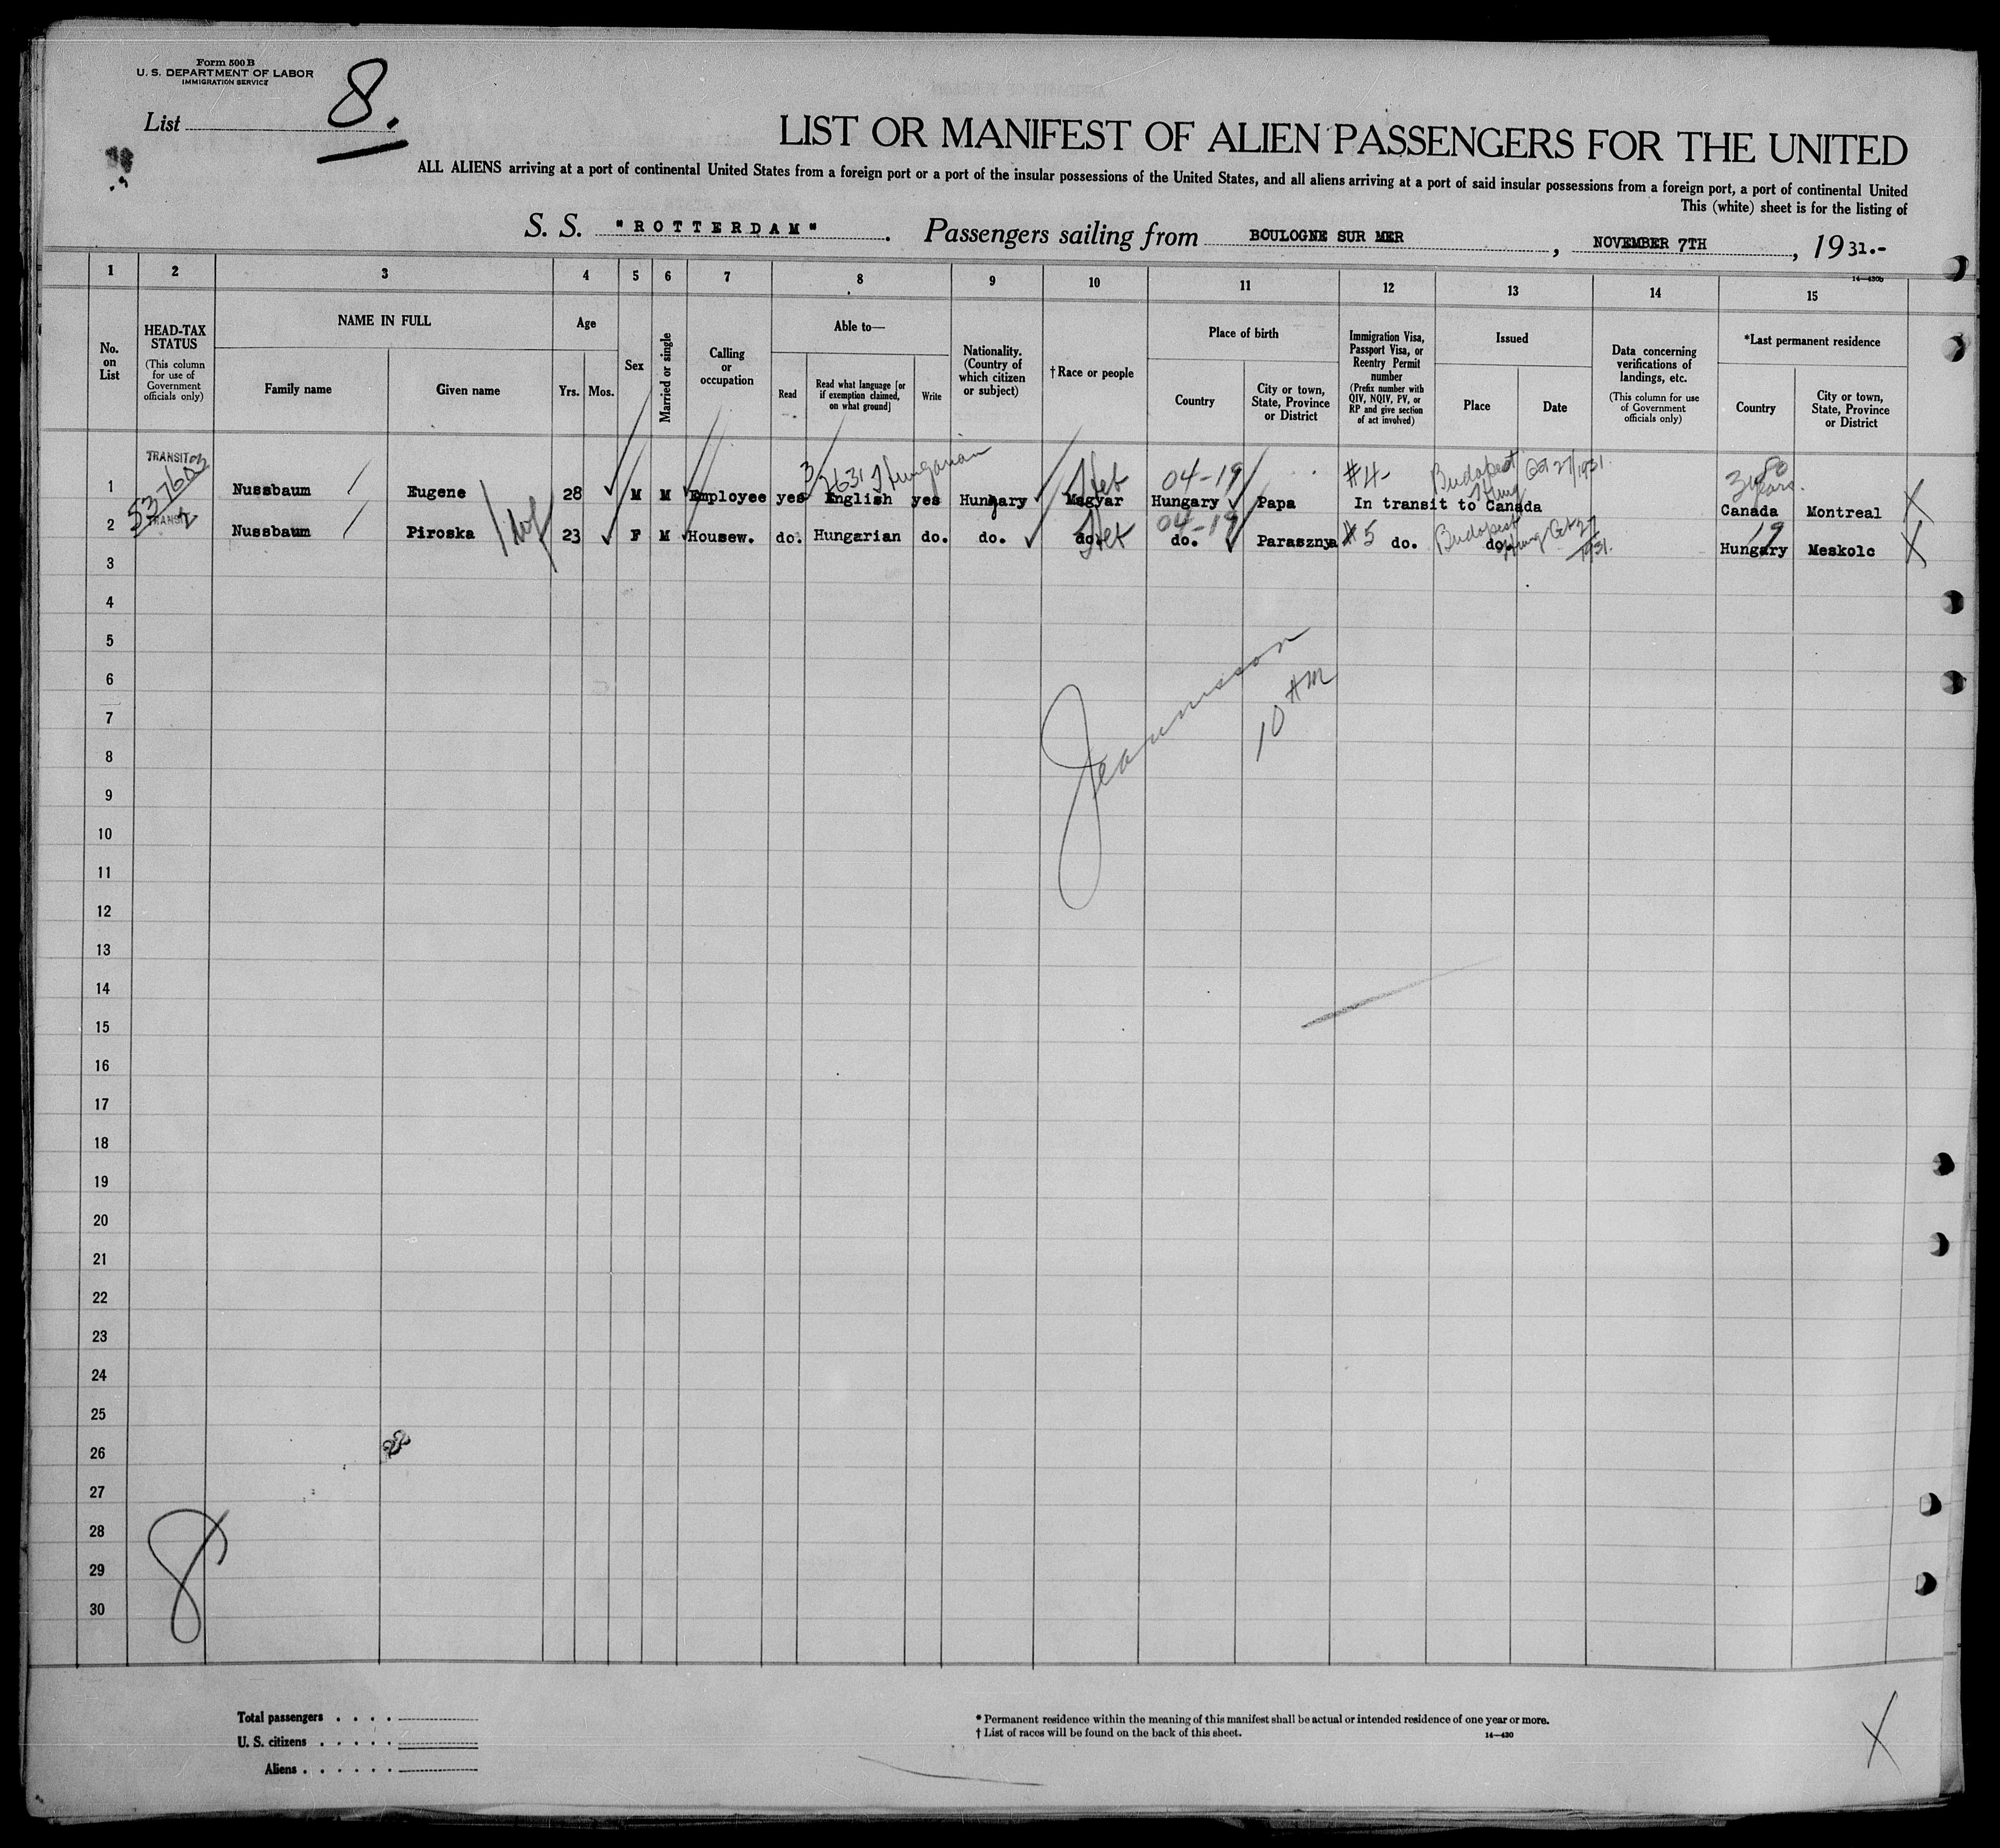 Form 500 B
U. S. DEPARTMENT OF LABOR
IMMIGRATION SERVICE
List 8.
LIST OR MANIFEST OF ALIEN PASSENGERS FOR THE UNITED
ALL ALIENS arriving at a port of continental United States from a foreign port or a port of the insular possessions of the United States, and all aliens arriving at a port of said insular possessions from a foreign port, a port of continental United
This (white) sheet is for the listing of
S. S. "ROTTERDAM". Passengers sailing from BOULOGNE SUR MER, NOVEMBER 7TH, 1931.-
14—430b
1 2 3 4 5 6 7 8 9 10 11 12 13 14 15
No. on List
HEAD-TAX STATUS
(This column for use of Government officials only)
NAME IN FULL
Family name
Given name
Age
Yrs. Mos.
Sex
Married or single
Calling or occupation
Able to—
Read
Read what language [or if exemption claimed, on what ground]
Write
Nationality. (Country of which citizen or subject)
† Race or people
Place of birth
Country
City or town, State, Province or District
Immigration Visa, Passport Visa, or Reentry Permit number
(Prefix number with QIV, NQIV, PV, or RP and give section of act involved)
Issued
Place
Date
Data concerning verifications of landings, etc.
(This column for use of Government officials only)
*Last permanent residence
Country
City or town, State, Province or District
TRANSIT Hungarian Heb 04-19 #4- Budapest Hung Oct 27/1931.
1 Nussbaum Eugene 28 M M Employee yes English yes Hungary Magyar Hungary Papa In transit to Canada Canada Montreal X
TRANSIT Heb 04-19 #5 Budapest Hung Oct 27 1931.
2 Nussbaum Piroska 23 F M Housew. do. Hungarian do. do. do. do. Parasznya do. do. 19 Hungary Meskolc X
3
4
5
6
7
8
9
10
11
12
13
14
15
16
17
18
19
20
21
22
23
24
25
26
27
28
29
30
10 AM
8
Total passengers . . . .
U. S. citizens . . . . .
Aliens . . . . . .
* Permanent residence within the meaning of this manifest shall be actual or intended residence of one year or more.
† List of races will be found on the back of this sheet.
14—430
X